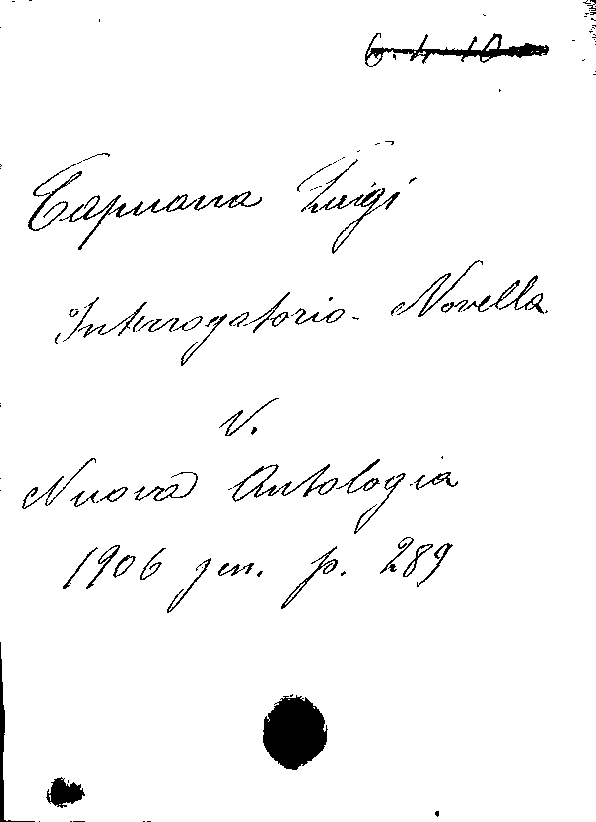 Capuana Luigi
Interrogatorio - Novella
V.
Nuova Antologia
1906 gen. p. 289